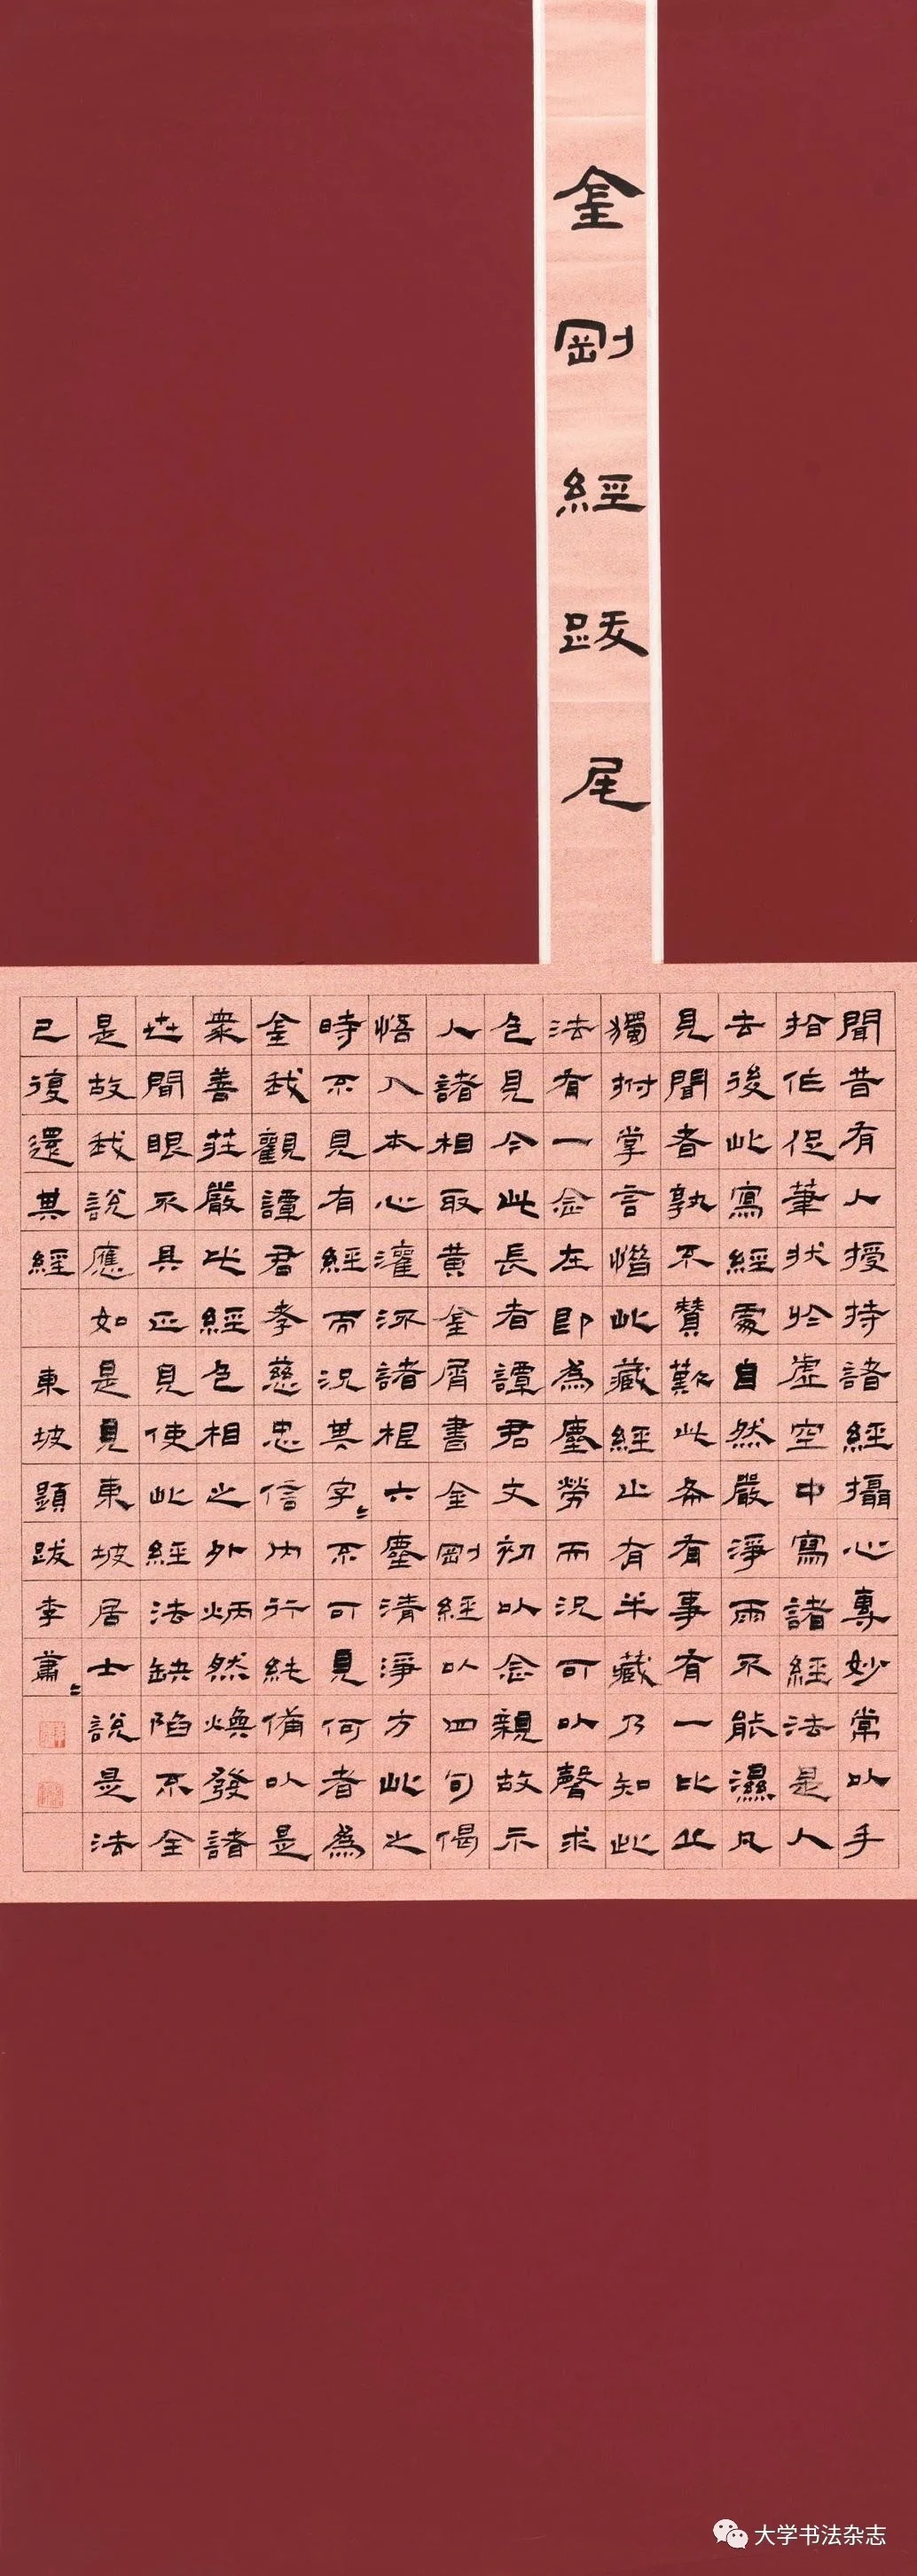 金剛經跋尾
聞昔有人授持諸經攝心專妙常以手
指作促筆狀於虛空中寫諸經法是人
去後此寫經處自然嚴淨雨不能濕凡
見聞者孰不贊歎此希有事有一比丘
獨拊掌言惜此藏經止有半藏乃知此
法有一念在即為塵勞而況可以聲求
色見今此長者譚君文初以念親故示
人諸相取黃金屑書金剛經以四句偈
悟入本心灌流諸根六塵清淨方此之
時不見有經而況其字〻不可見何者為
金我觀譚君孝慈忠信內行純備以是
眾善莊嚴此經色相之外炳然煥發諸
世間眼不具正見使此經法缺陷不全
是故我說應如是見東坡居士說是法
已復還其經 東坡題跋李蕭〻
大学书法杂志